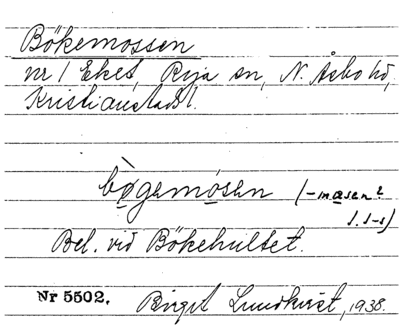 Bökemossen
nr 1 Eket, Rya sn, N. Åsbo hd,
Kristianstad l.
bø̀gemosen (-masen?
Bel. vid Bökehultet.
Nr 5502. Birgit Lundkvist, 1938.